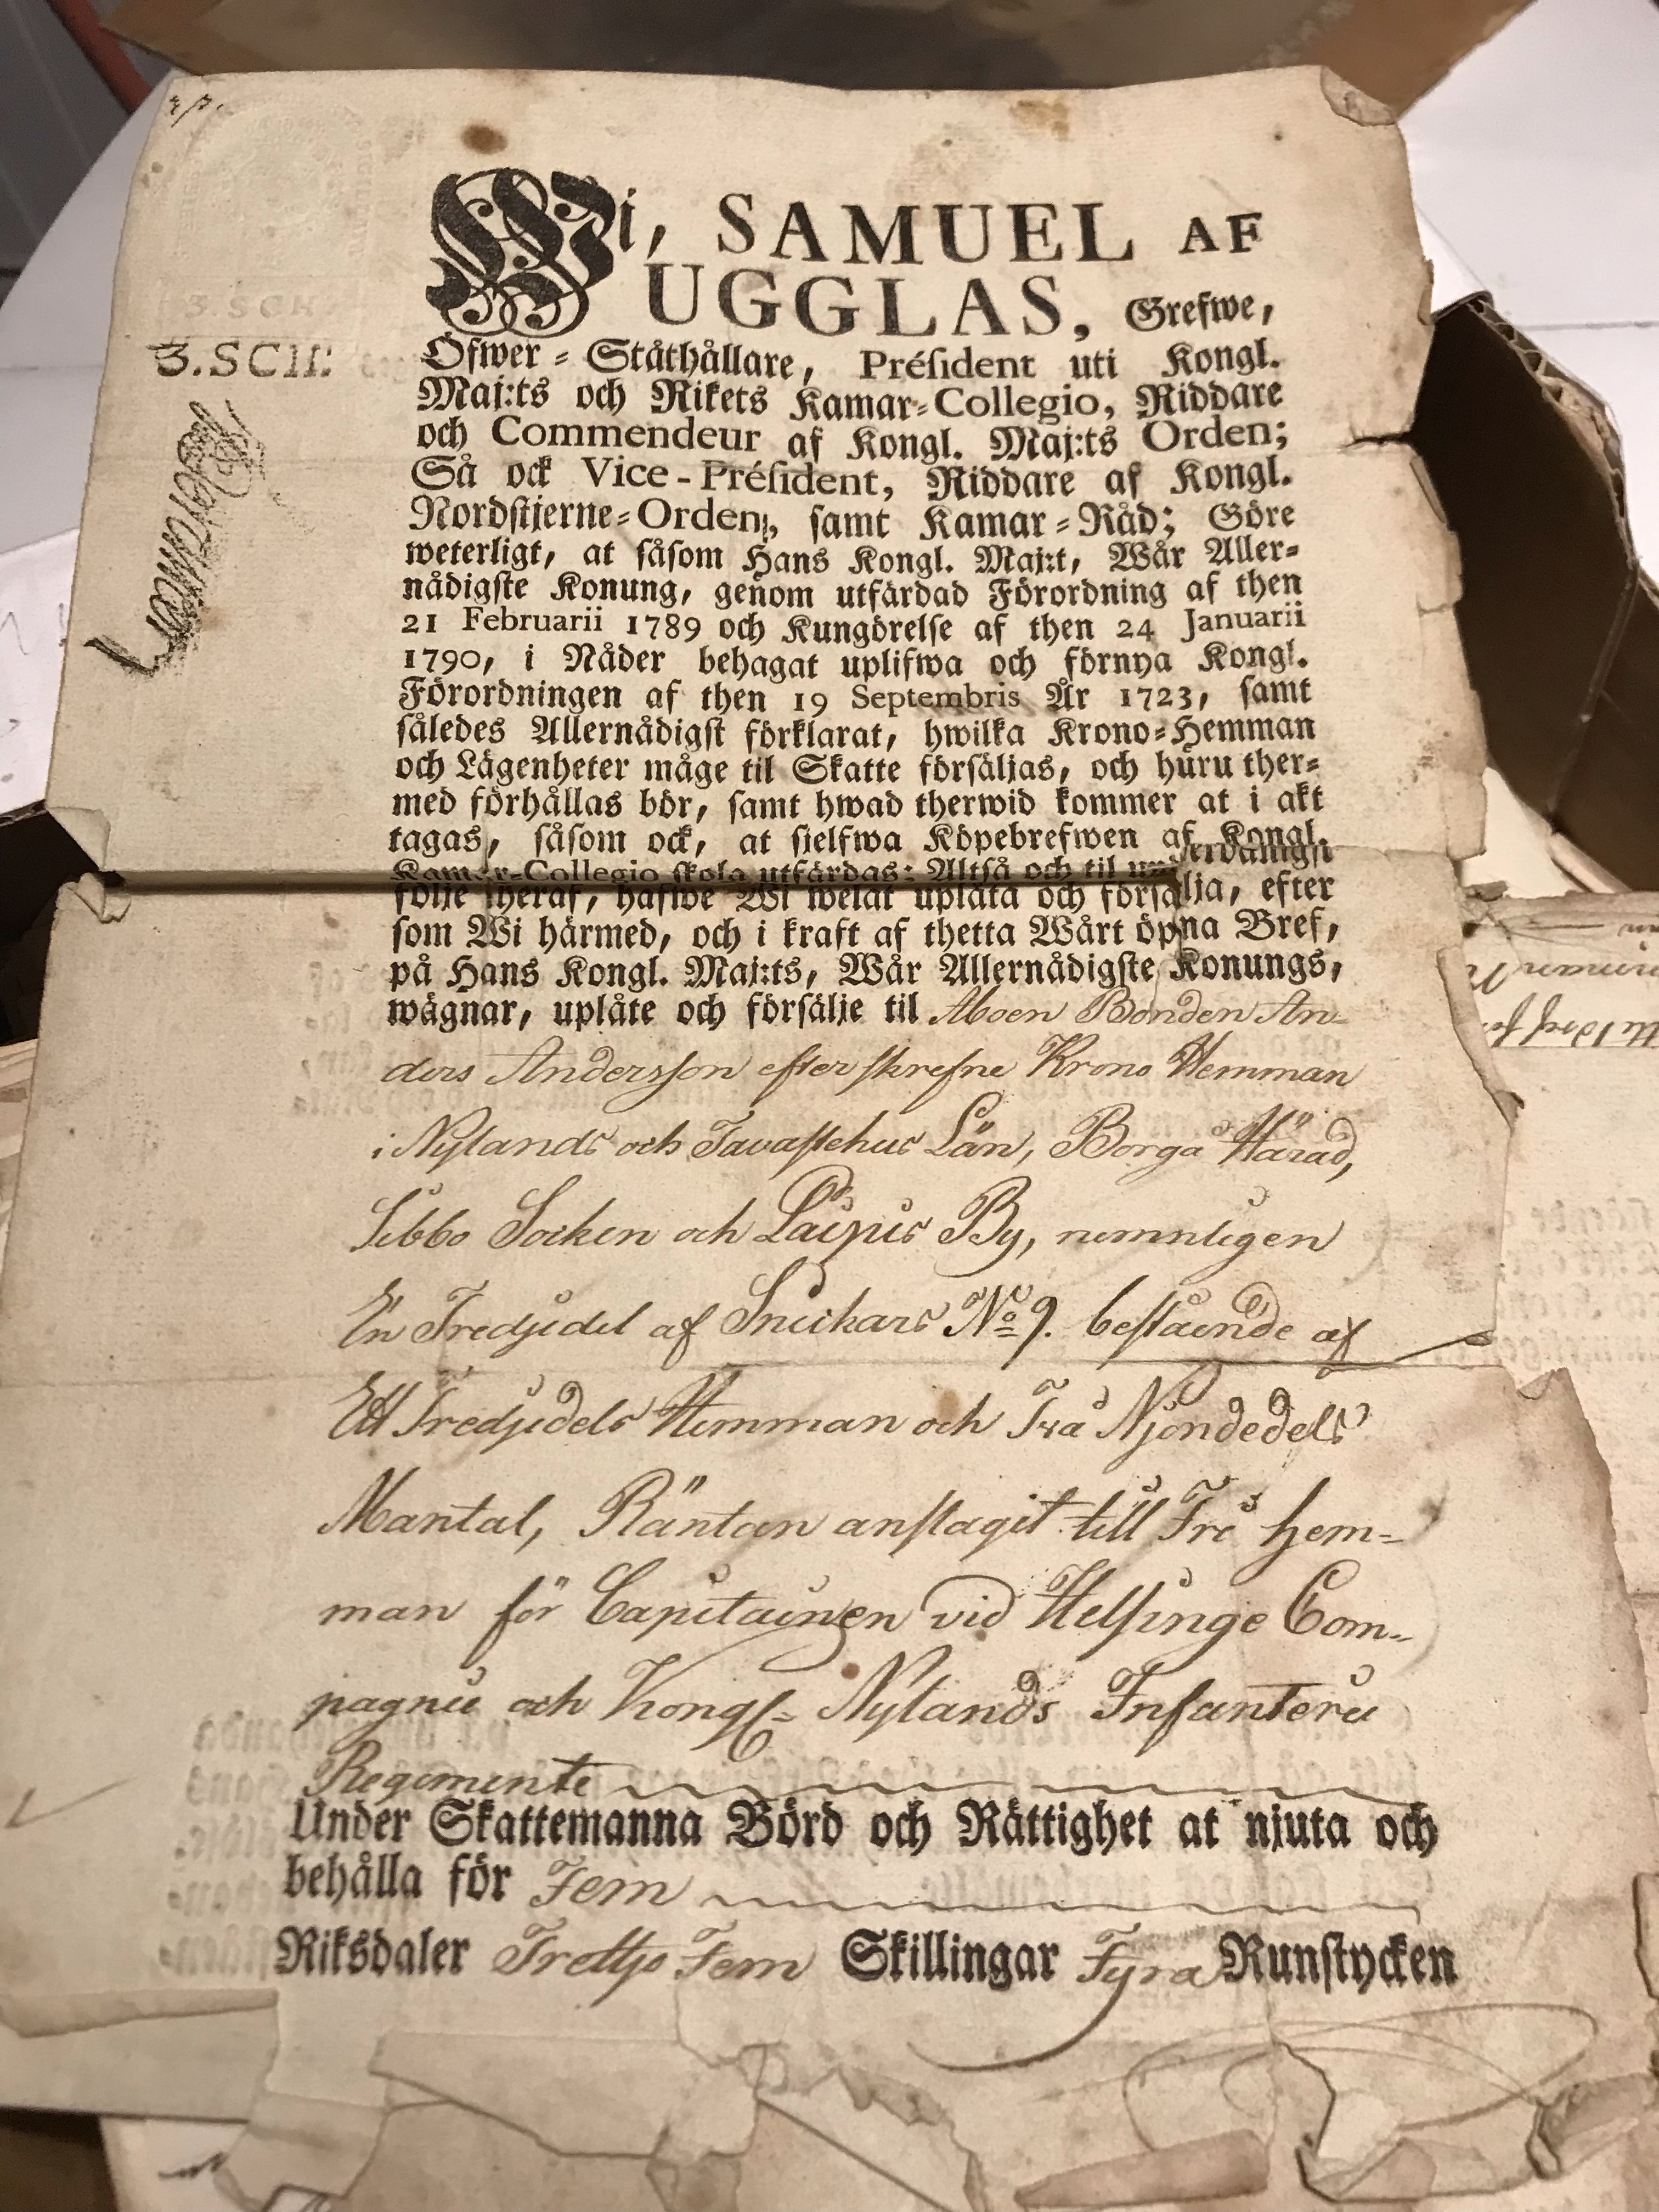 3.SCH:
Wi, SAMUEL AF
UGGLAS, Grefwe,
Öfwer=Ståthållare, Préſident uti Kongl.
Maj:ts och Rikets Kamar=Collegio, Riddare
och Commendeur af Kongl. Maj:ts Orden;
Så ock Vice-Préſident, Riddare af Kongl.
Nordſtjerne=Orden, ſamt Kamar=Råd; Göre
weterligt, at ſåſom Hans Kongl. Maj:t, Wår Aller=
nådigſte Konung, genom utfärdad Förordning af then
21 Februarii 1789 och Kungörelſe af then 24 Januarii
1790, i Nåder behagat uplifwa och förnya Kongl.
Förordningen af then 19 Septembris År 1723, ſamt
således Allernådigſt förklarat, hwilka Krono=Hemman
och Lägenheter måge til Skatte förſäljas, och huru ther=
med förhållas bör, ſamt hwad therwid kommer at i akt
tagas, ſåſom ock, at ſjelfwa Köpebrefwen af Kongl.
Kamar-Collegio ſkola utfärdas: Altſå och til underdånigſt
följe theraf, hafwe Wi welat uplåta och förſälja, efter
ſom Wi härmed, och i kraft af thetta Wårt öpna Bref,
på Hans Kongl. Maj:ts, Wår Allernådigſte Konungs,
wägnar, uplåte och förſälje til Åboen Bonden An=
ders Anderſſon efterſkrefne Krono Hemman
i Nylands och Tavaſtehus Län, Borgå Härad,
Sibbo Socken och Paipis By, nemnligen
En Tredjedel af Snickars No 9. beſtående af
Ett Tredjedels Hemman och Två Njondedels
Mantal, Räntan anſlagit till Fré hem=
man för Capitainen vid Helſinge Com=
pagnie och Kongl= Nylands Infanterie
Regemente
Under Skattemanna Börd och Rättighet at njuta och
behålla för Fem
Riksdaler Trettjo Fem Skillingar Fyra Runſtycken